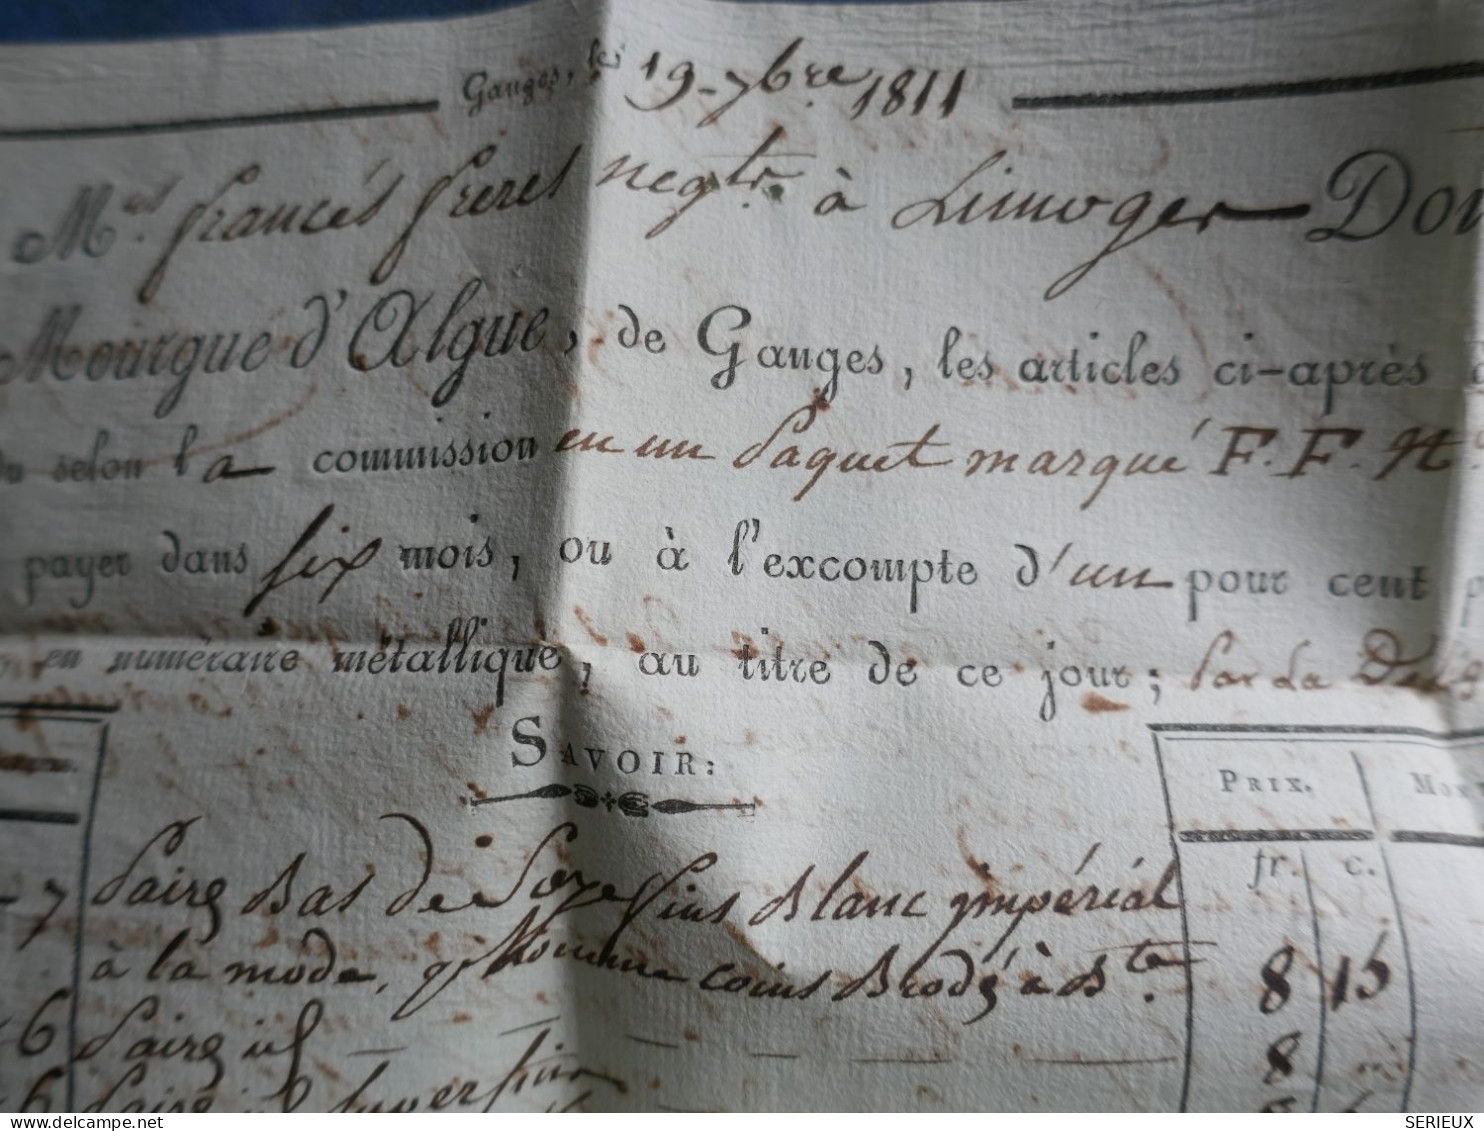 Ganges, les 19 - 7bre 1811
Mrs. francés freres negts à Limoges Doi
Mourgue d'Algue, de Ganges, les articles ci-après
selon la commission en un Paquet marqué F. F. N
payer dans six mois, ou à l'excompte d'un pour cent p
en numéraire métallique, au titre de ce jour; Par La
SAVOIR:
PRIX.
fr. c.
7 Paires Bas de Soye fins Blanc impérial
à la mode, pr homme coins Brodés à Bte. 8 15
6 Paires id 8
6 Paires id superfin
SERIEUX